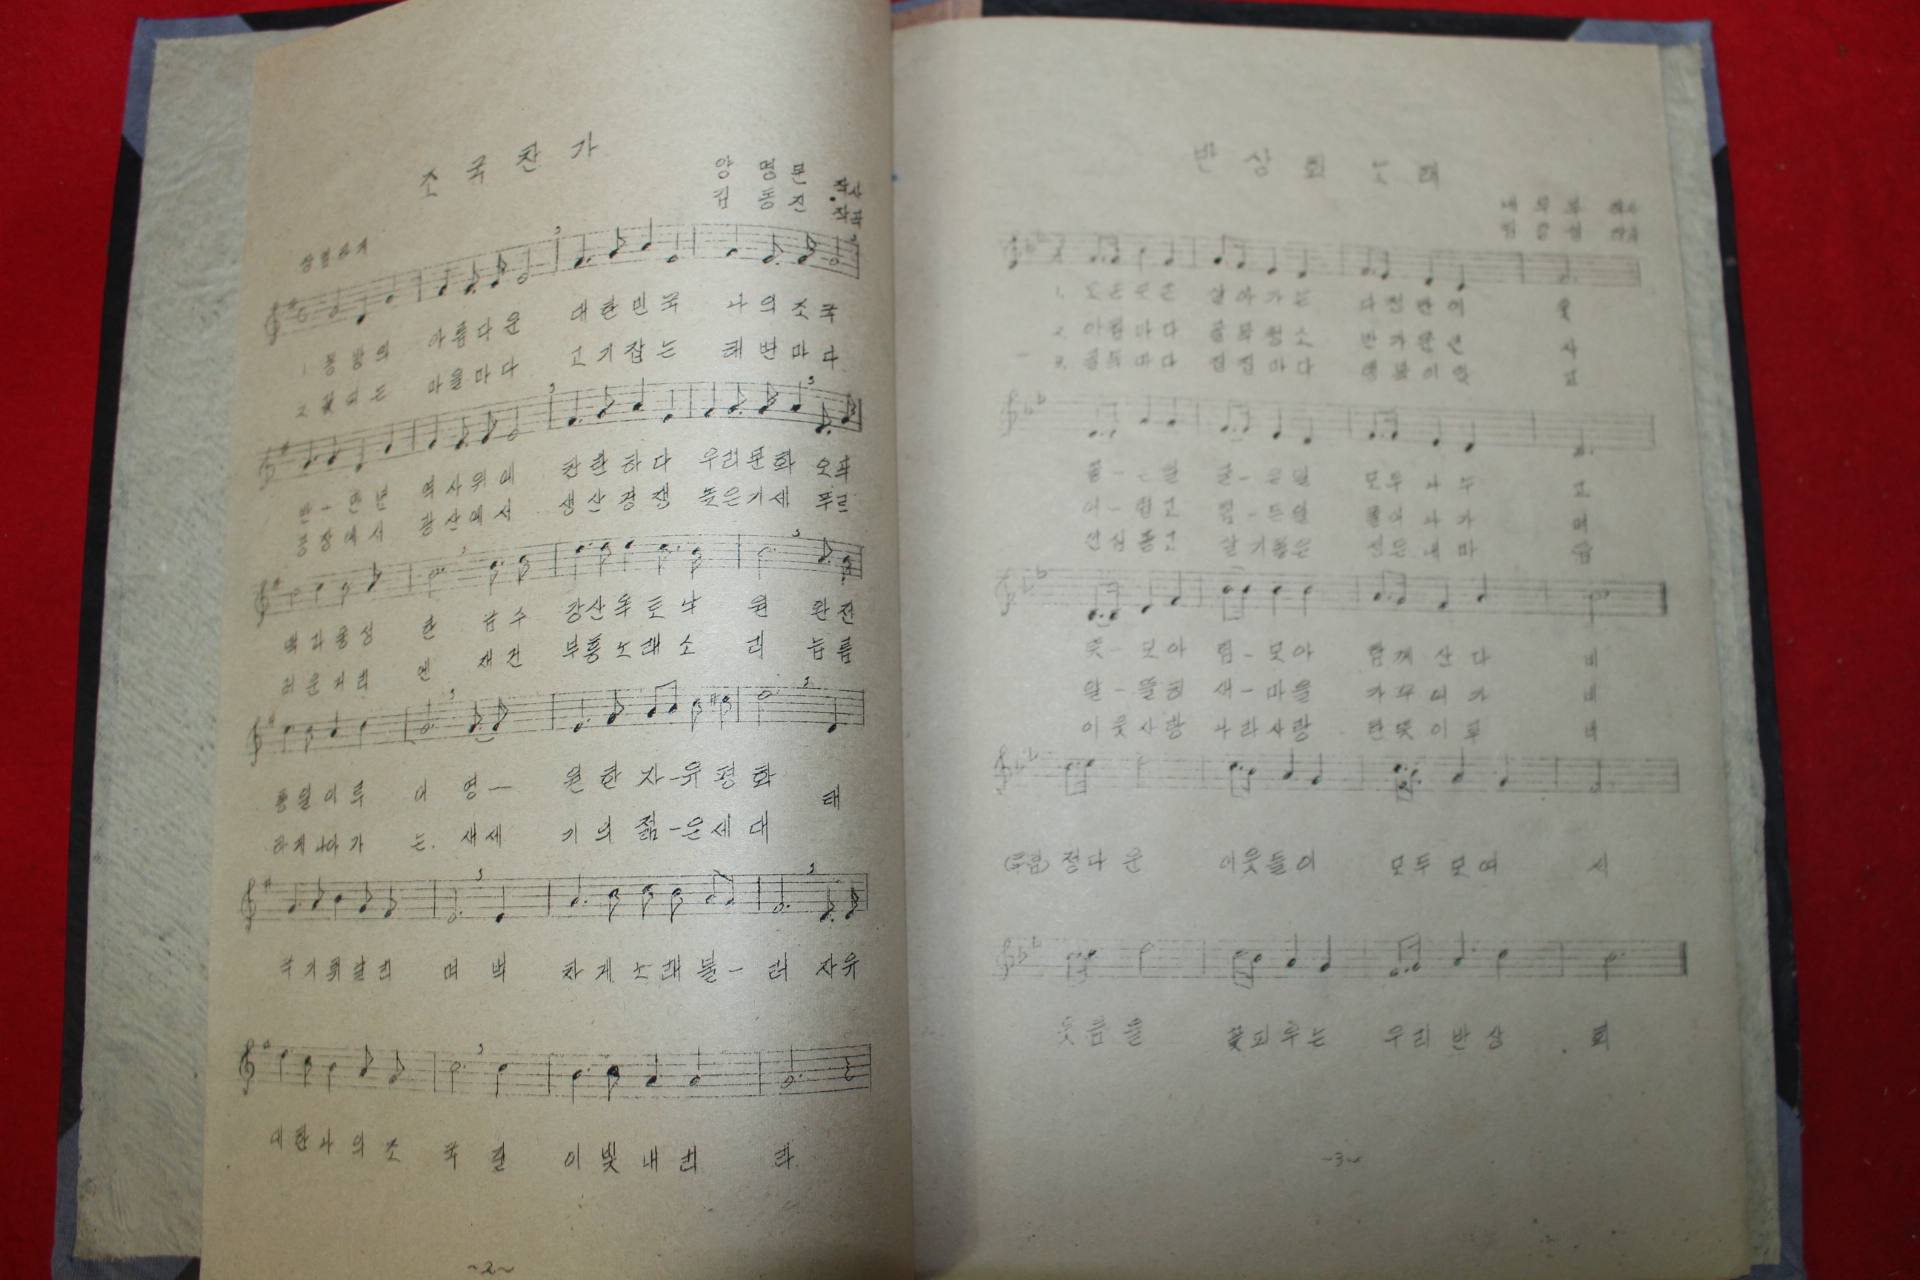 조국찬가
양명문 작사
김동진 작곡
1 동방의 아름다운 대한민국 나의조국
2 꽃피는 마을마다 고기잡는 해변마다
반-만년 역사위에 찬란하다 우리문화 오곡
공장에서 광산에서 생산경쟁 높은기세 푸르
백과풍성 한 금수 강산옥토낙 원 완전
러운거리 엔 재건 부흥노래소 리 늠름
통일이루 어 영— 원한자-유평화
하게나아가 는. 새세 기의젊-은세대 태
극기휘날리 며 벅 차게노래불-러 자유
대한나의조 국길 이빛내리 라.
~2~
반상회노래
내무부 작사
1. 오손도손 살아가는 다정한이 웃
2. 반가운
3. 집집마다 행복이
모두나누 고
어-렵고 힘-든일 풀어나가 며
뜻-모아 힘-모아 함께산다 네
알-뜰히 새-마을 가꾸어가 네
이웃사랑 나라사랑 한뜻이루 네
(후렴) 정다운 이웃들이 모두모여 서
웃음을 꽃피우는 우리반상 회
~3~